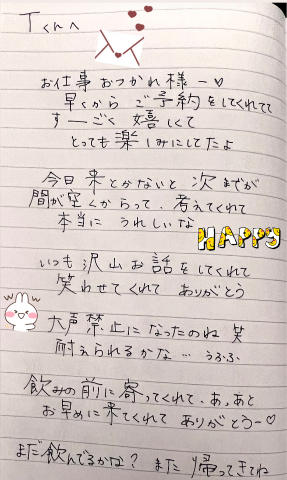 Tくんへ
お仕事おつかれ様ー♡
早くから ご予約をしてくれてて
すーごく 嬉しくて
とっても楽しみにしてたよ
今日来とかないと 次までが
間が空くからって、考えてくれて
本当に うれしいな
HAPPY
いつも沢山お話をしてくれて
笑わせてくれて ありがとう
大声禁止になったのね 笑
耐えられるかな… うふふ
飲みの前に寄ってくれて、あ、あと
お早めに来てくれて ありがとうー♡
まだ飲んでるかな? また 帰ってきてね